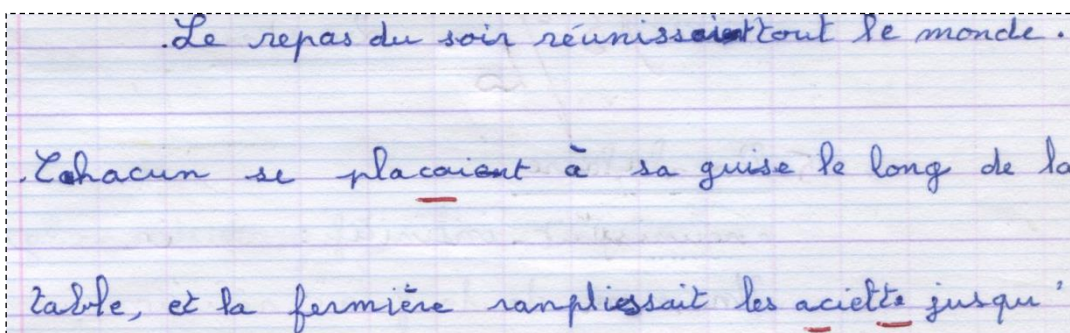 .Le repas du soir réunissaient tout le monde.
.Chacun se placaient à sa guise le long de la
table, et la fermière ranplissait les aciette jusqu'